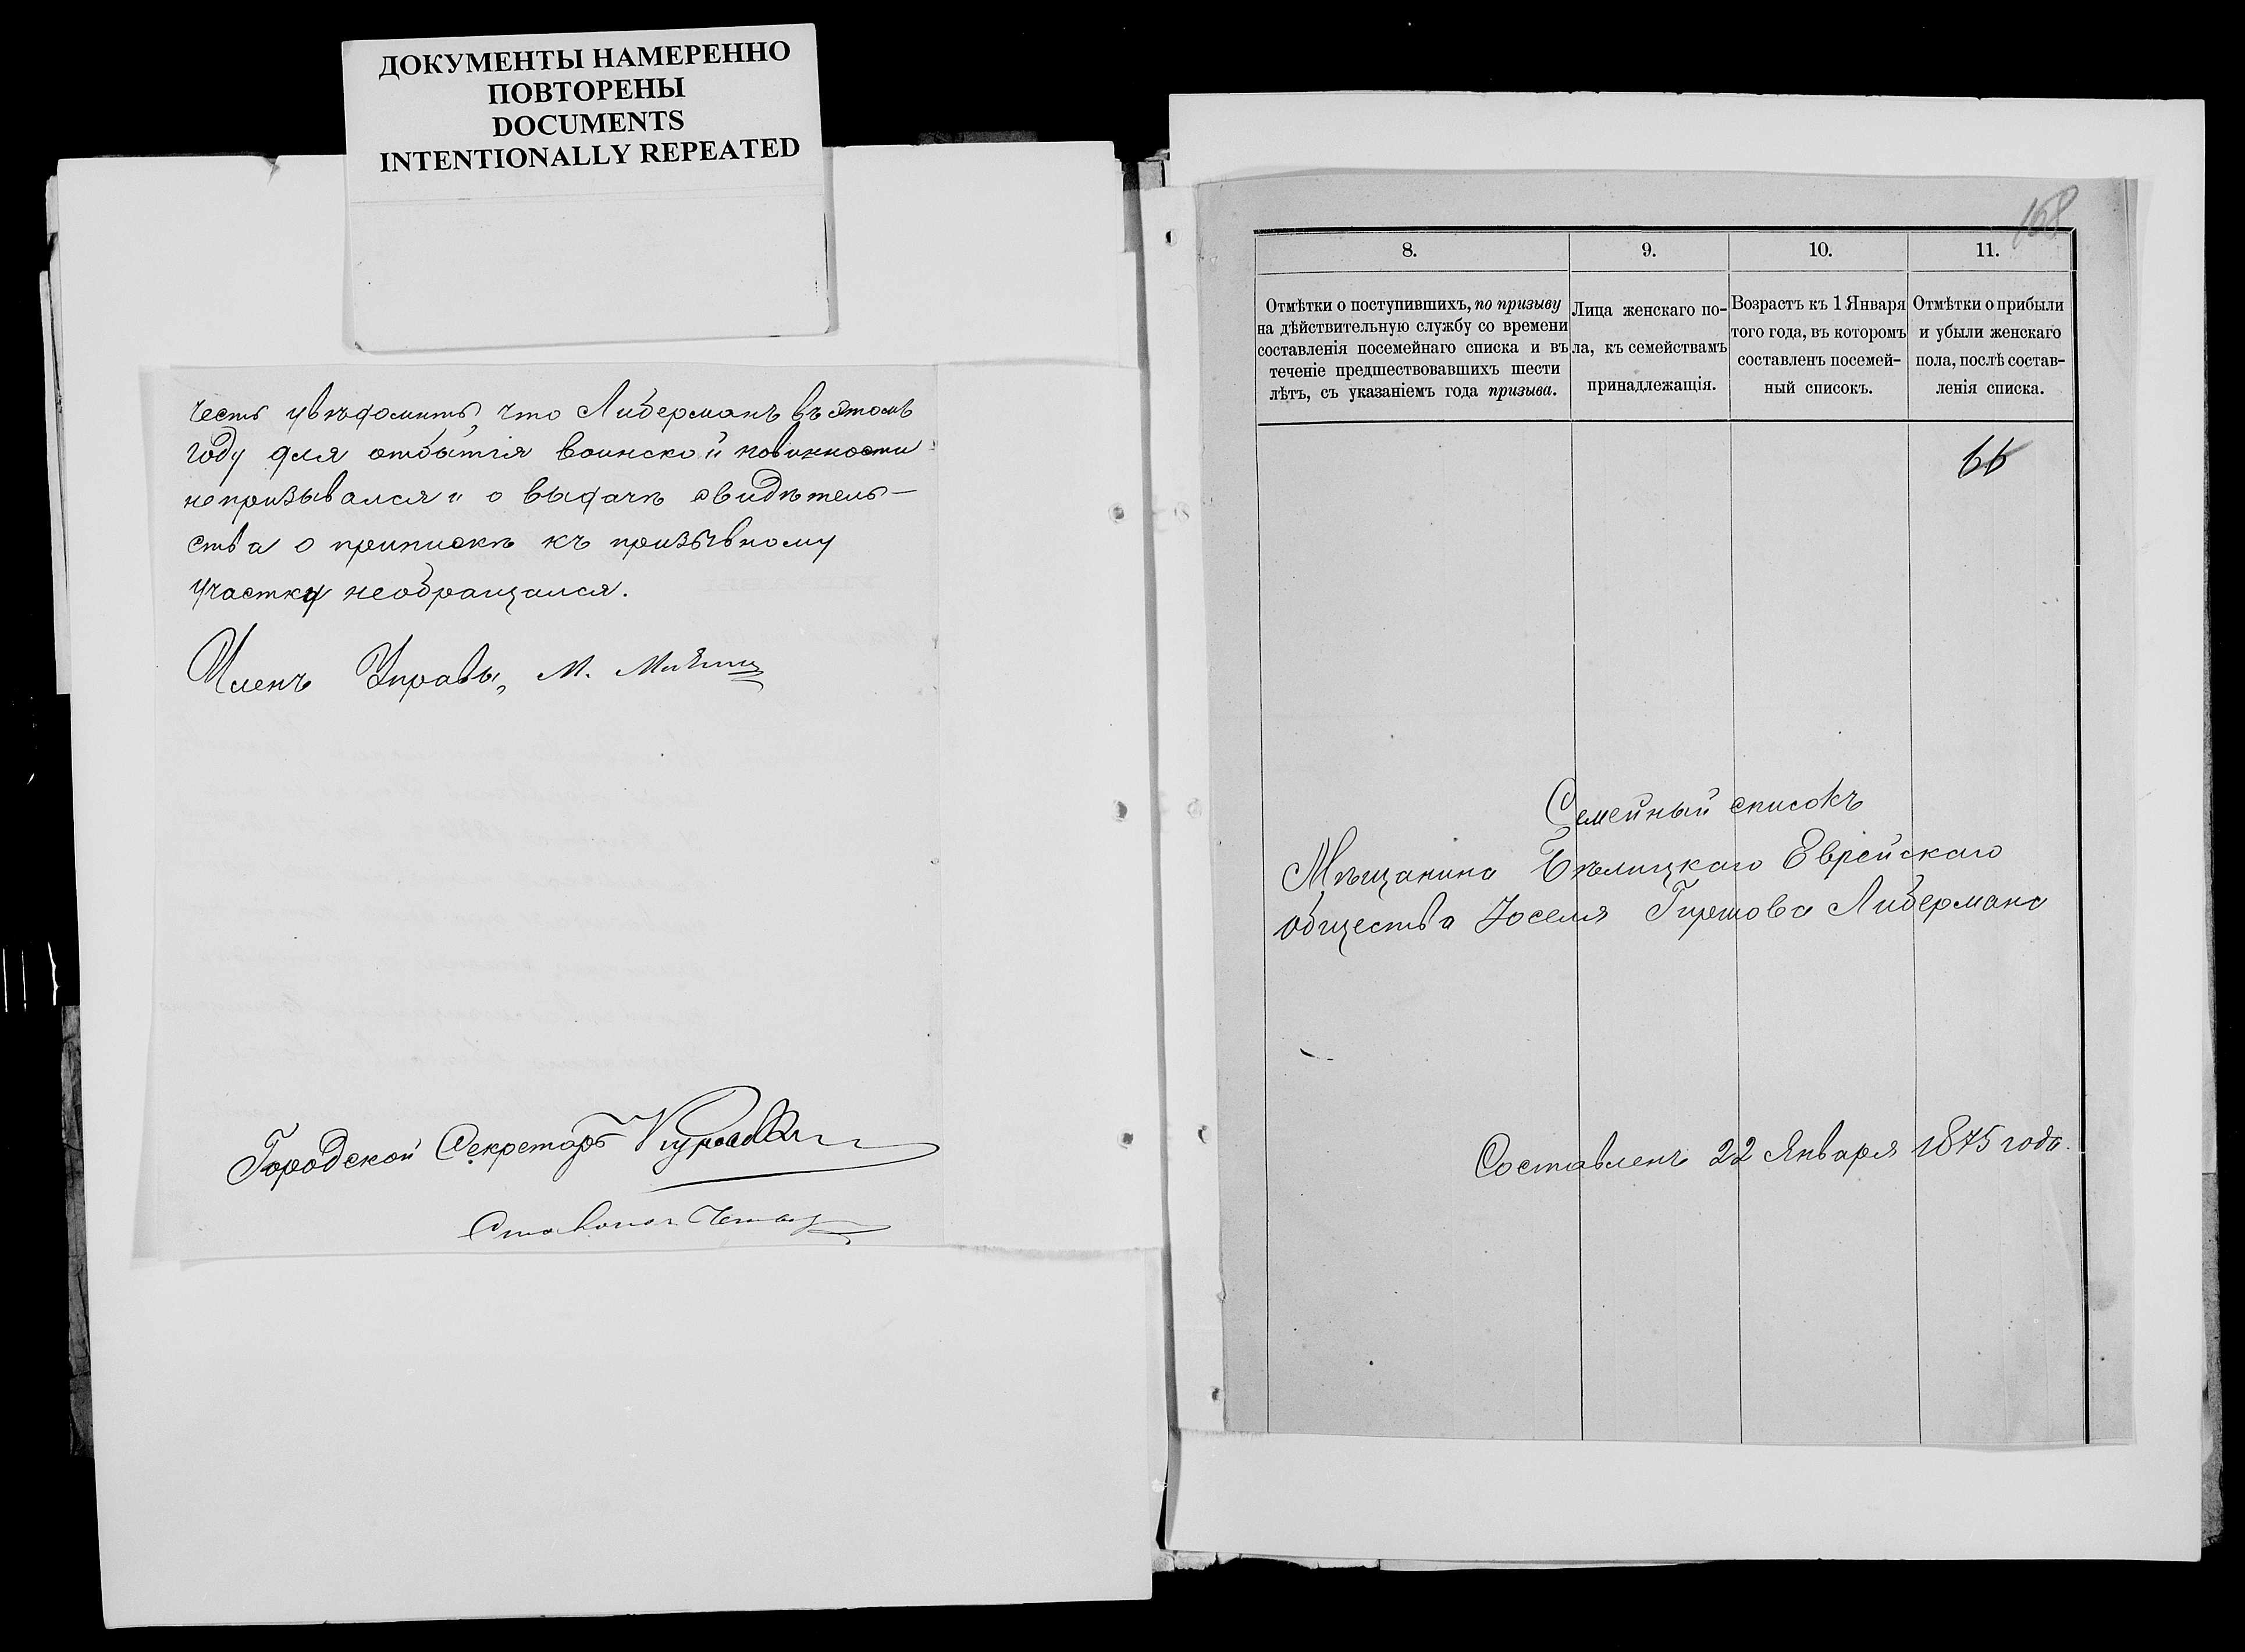 ДОКУМЕНТЫ НАМЕРЕННО
ПОВТОРЕНЫ
DOCUMENTS
INTENTIONALLY REPEATED
честь увѣдомить, что Либерманъ въ этомъ
году для отбытія воинской повинности
непризывался и о выдачѣ свидѣтель-
ства о припискѣ къ призывному
участку необращался.
Членъ Управы, М.
Городской Секретарь
168
8.
9.
10.
11.
Отмѣтки о поступившихъ, по призыву
на дѣйствительную службу со времени
составленія посемейнаго списка и въ
теченіе предшествовавшихъ шести
лѣтъ, съ указаніемъ года призыва.
Лица женскаго по-
ла, къ семействамъ
принадлежащія.
Возрастъ къ 1 Января
того года, въ которомъ
составленъ посемей-
ный списокъ.
Отмѣтки о прибыли
и убыли женскаго
пола, послѣ состав-
ленія списка.
66
Семейный списокъ
Мѣщанина Бѣлицкаго Еврейскаго
общества Іоселя Гиршова Либермана
Составленъ 22 Января 1875 года.